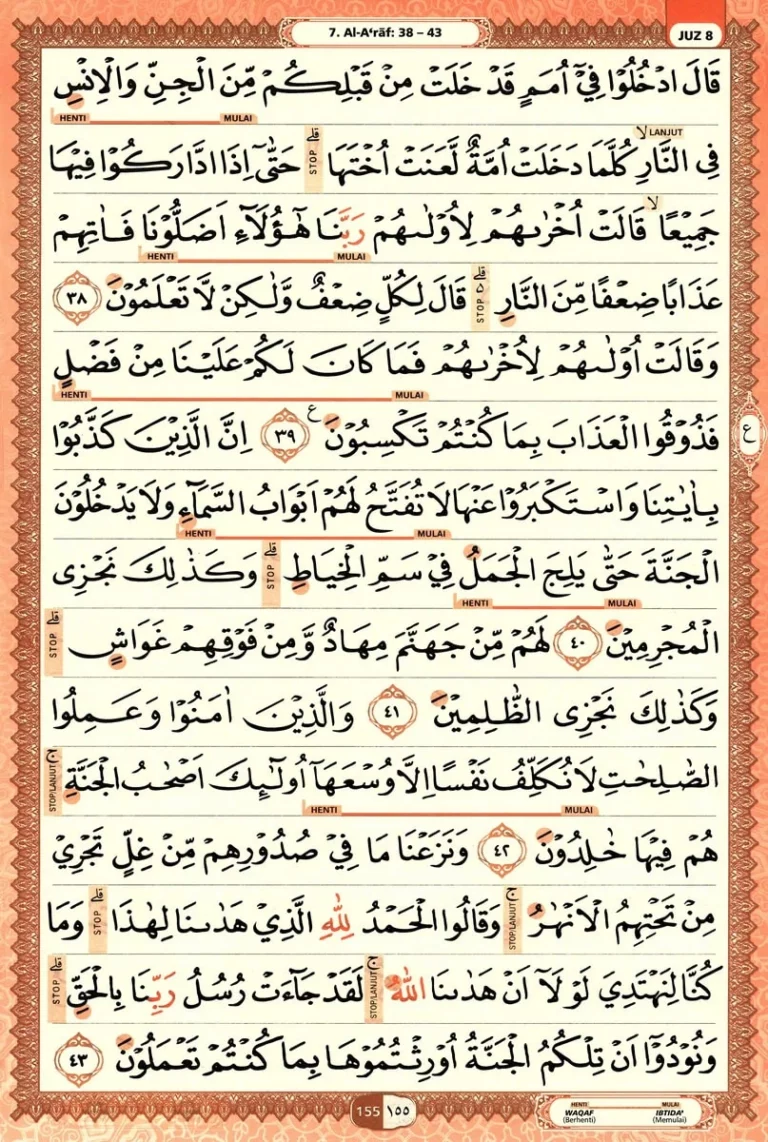 7. Al-A‘rāf: 38 – 43
JUZ 8
قَالَ ادْخُلُوْا فِيْٓ اُمَمٍ قَدْ خَلَتْ مِنْ قَبْلِكُمْ مِّنَ الْجِنِّ وَالْاِنْسِ
HENTI MULAI LANJUT
فِى النَّارِ ۙ كُلَّمَا دَخَلَتْ اُمَّةٌ لَّعَنَتْ اُخْتَهَا ۗ STOP حَتّٰٓى اِذَا ادَّارَكُوْا فِيْهَا
جَمِيْعًا ۙ قَالَتْ اُخْرٰىهُمْ لِاُوْلٰىهُمْ رَبَّنَا هٰٓؤُلَاۤءِ اَضَلُّوْنَا فَاٰتِهِمْ
HENTI MULAI
عَذَابًا ضِعْفًا مِّنَ النَّارِ ۗ ە STOP قَالَ لِكُلٍّ ضِعْفٌ وَّلٰكِنْ لَّا تَعْلَمُوْنَ ٣٨
وَقَالَتْ اُوْلٰىهُمْ لِاُخْرٰىهُمْ فَمَا كَانَ لَكُمْ عَلَيْنَا مِنْ فَضْلٍ
HENTI MULAI
فَذُوْقُوا الْعَذَابَ بِمَا كُنْتُمْ تَكْسِبُوْنَ ࣖ ٣٩ اِنَّ الَّذِيْنَ كَذَّبُوْا
ع
بِاٰيٰتِنَا وَاسْتَكْبَرُوْا عَنْهَا لَا تُفَتَّحُ لَهُمْ اَبْوَابُ السَّمَاۤءِ وَلَا يَدْخُلُوْنَ
HENTI MULAI
الْجَنَّةَ حَتّٰى يَلِجَ الْجَمَلُ فِيْ سَمِّ الْخِيَاطِ ۗ STOP وَكَذٰلِكَ نَجْزِى
HENTI MULAI
الْمُجْرِمِيْنَ ٤٠ لَهُمْ مِّنْ جَهَنَّمَ مِهَادٌ وَّمِنْ فَوْقِهِمْ غَوَاشٍ ۗ STOP
وَكَذٰلِكَ نَجْزِى الظّٰلِمِيْنَ ٤١ وَالَّذِيْنَ اٰمَنُوْا وَعَمِلُوا
الصّٰلِحٰتِ لَا نُكَلِّفُ نَفْسًا اِلَّا وُسْعَهَآ اُولٰۤىِٕكَ اَصْحٰبُ الْجَنَّةِ ۚ STOP/LANJUT
HENTI MULAI
هُمْ فِيْهَا خٰلِدُوْنَ ٤٢ وَنَزَعْنَا مَا فِيْ صُدُوْرِهِمْ مِّنْ غِلٍّ تَجْرِيْ
مِنْ تَحْتِهِمُ الْاَنْهٰرُ ۚ STOP/LANJUT وَقَالُوا الْحَمْدُ لِلّٰهِ الَّذِيْ هَدٰىنَا لِهٰذَا ۗ STOP وَمَا
كُنَّا لِنَهْتَدِيَ لَوْلَآ اَنْ هَدٰىنَا اللّٰهُ ۚ STOP/LANJUT لَقَدْ جَاۤءَتْ رُسُلُ رَبِّنَا بِالْحَقِّ ۗ STOP
وَنُوْدُوْٓا اَنْ تِلْكُمُ الْجَنَّةُ اُوْرِثْتُمُوْهَا بِمَا كُنْتُمْ تَعْمَلُوْنَ ٤٣
155 ١٥٥
HENTI MULAI
WAQAF IBTIDA'
(Berhenti) (Memulai)